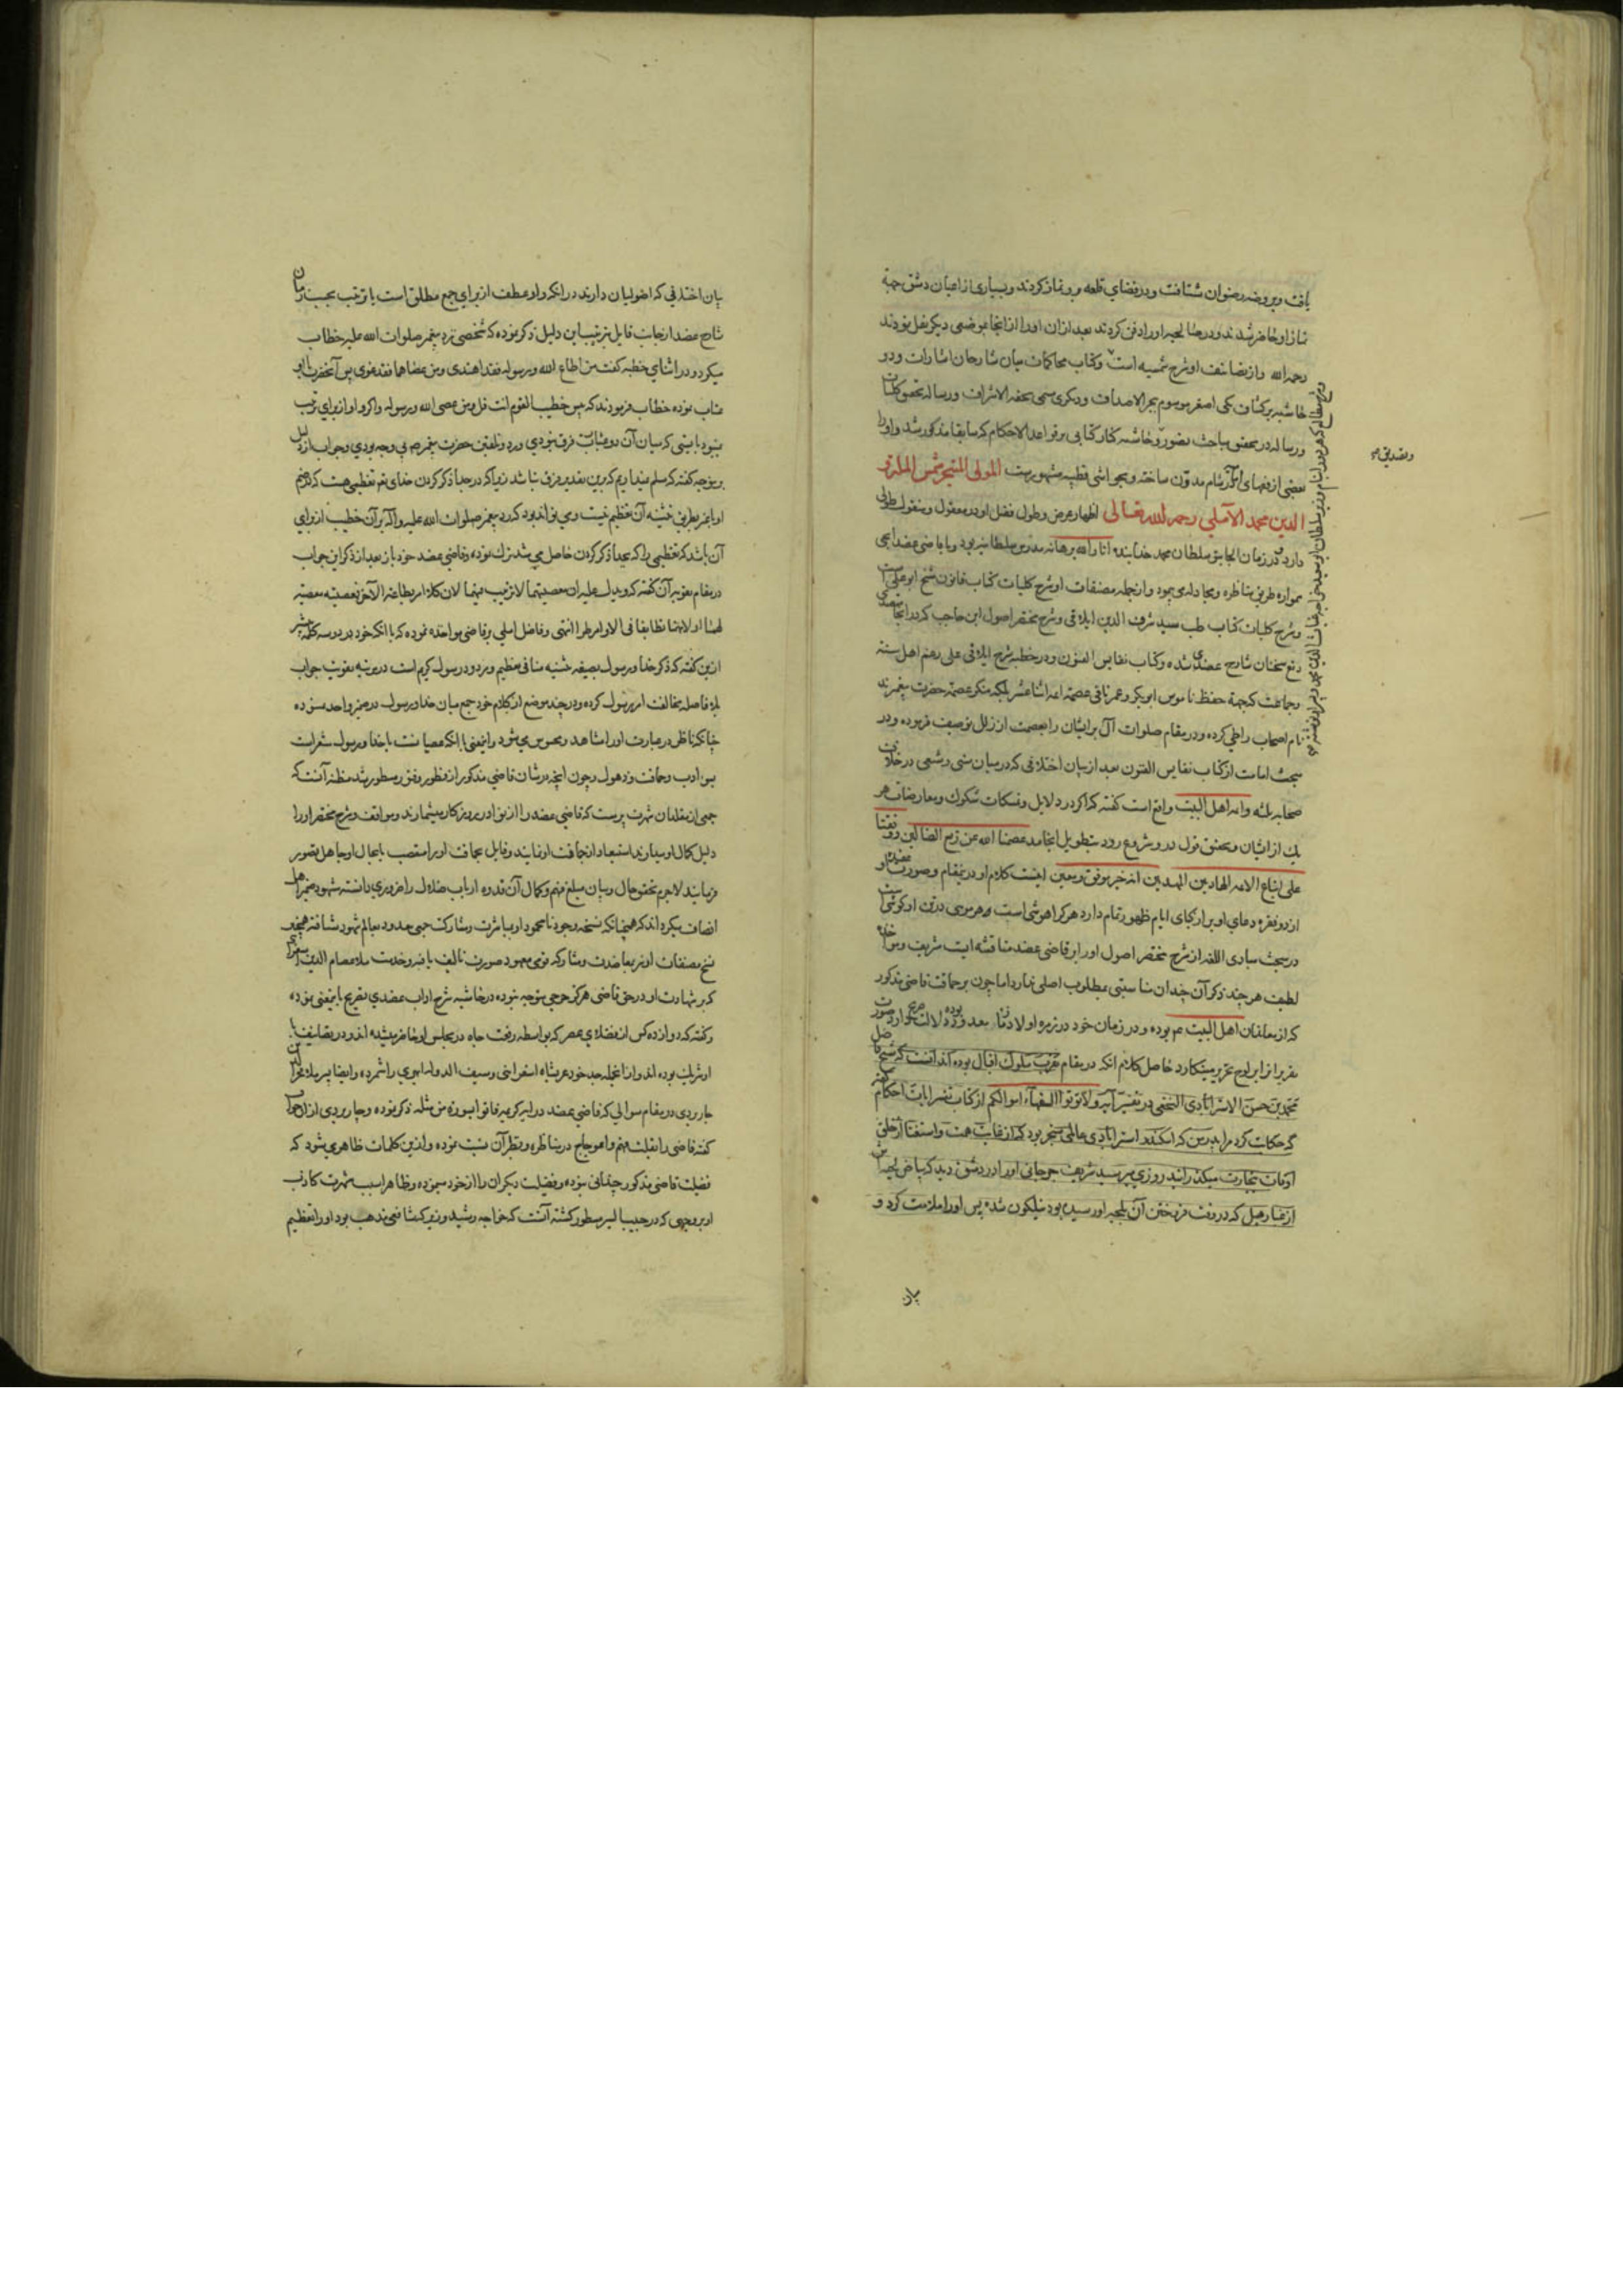 یافت و بروضه رضوان شتافت و در فضای قلعه برو نماز کردند و بسیاری از اعیان دمشق جهة
نماز او حاضر شدند و در صالحیه او را دفن کردند بعد از ان او را از انجا بموضعی دیگر نقل نمودند
رحمه الله و از تصانیف او شرح شمسیه است و کتاب محاکمات میان شارحان اشارات و دو
حاشیه بر کشاف یکی اصغر موسوم ببحر الاصداف و دیگری مسمی بتحفه الاشراف و رساله تحقیق کلیات
و رساله در تحقیق مباحث تصور و حاشیه کنار کتابی بر قواعد الاحکام که سابقا مذکور شد و او را
بعضی از فقهای شام مدون ساخته و بحواشی قطبیه مشهور است المولی المتبحر شمس الملة و
الدین محمد الآملی رحمه الله تعالی اظهار عرض و طول فضل او در معقول و منقول طولی
دارد در زمان الجایتو سلطان محمد خدابنده انار الله برهانه مدرس سلطانیه بود و با قاضی عضد ایجی
همواره طریق مناظره و مجادله می پیمود و از جمله مصنفات او شرح کلیات کتاب قانون شیخ ابو علی است
و شرح کلیات کتاب طب سید شرف الدین ایلاقی و شرح مختصر اصول ابن حاجب که در انجا متصدی
دفع سخنان شارح عضدی شده و کتاب نفایس الفنون و در خطبه شرح ایلاقی علی رغم اهل سنة
و جماعت که بجهة حفظ ناموس ابو بکر و عمر نافی عصمة ائمه اثنا عشر بلکه منکر عصمة حضرت پیغمبرند
نام اصحاب را طی کرده و در مقام صلوات آل برایشان را بعصمت از زلل توصیف فرموده و در
مبحث امامت از کتاب نفایس الفنون بعد از بیان اختلافی که در میان سنی و شیعی در خلافت
صحابه ثلثه و ائمه اهل البیت واقع است گفته که اگر در دلایل و تمسکات شکوک و معارضات هر
یک از ایشان و تحقیق قول درو شروع رود بتطویل انجامد عصمنا الله عن زیع الضالین و وفقنا
علی اتباع الائمه الهادین المهدیین انه خیر موفق و معین اینست کلام او درینمقام و صورت
از دو فقره دعای او برارکای ایام ظهور تمام دارد هر کرا هوشی است و هر موی درتن او گوشی است
در مبحث مبادی اللغه از شرح مختصر اصول او را بر قاضی عضد مناقشه ایست شریف
لطیف هر چند ذکر آن چندان مناسبتی بمطلوب اصلی ندارد اما چون بر حماقت قاضی مذکور
که از معاندان اهل البیت عم بوده و در زمان خود در زمره اولاد
تقریر از ابراهم تحریر مینکارد حاصل کلام انکه در مقام
محمد بن حسن الاسترابادی النجفی در تفسیر آیه ولا تؤتوا السفهآء اموالکم از کتاب تفسیر ایات احکام
که حکایت کرد مرا پدرش که
اوقات بتجارت میکذرانید روزی پیر سید شریف جرجانی او را در دمشق دید که بیاض لحیه
که در وقت فروختن آن بلحیه او رسیده بود نیلکون شده پس او را ملامت کرد و
و تصدیق صح
بیان
بیان اختلافی که اصولیان دارند در انکه واو عطف از برای جمع مطلق است یا ترتیب بحسب زمان
شارح عضد از جانب قایل بترتیب این دلیل ذکر نموده که شخصی نزد پیغمبر صلوات الله علیه خطاب
میکرد و در اثنای خطبه گفت من اطاع الله و رسوله فقد اهتدی و من عصاهما فقد غوی پس آنحضرت باو
عتاب نموده خطاب فرمودند که بئس خطیب القوم انت قل و من عصی الله و رسوله و اگر واو از برای ترتیب
نبود بایستی که میان آن دو عبارت فرق نبودی و رد و تلقین حضرت پیغمبر ص بی وجه بودی و جواب از دلیل
برین وجه گفته که مسلم نمیداریم که برین تقدیر فرق نباشد زیرا که در جدا ذکر کردن خدای تعم تعظیمی هست که در ضم
او بغیر بطریق تثنیه آن تعظیم نیست و می تواند بود که رد پیغمبر صلوات الله علیه و آله بر آن خطیب از برای
آن باشد که تعظیمی را که بجدا ذکر کردن حاصل می شد ترک نموده و قاضی عضد خود باز بعد از ذکر این جواب
در مقام تقویه آن گفته که و یدل علیه ان معصیتهما لا ترتیب فیهما لان کلا امر بطاعة الآخر فمعصیته معصیة
لهما اذ لابد ان تطابقا فی الاوامر طرا انتهی و فاضل املی بر قاضی مواخذه نموده که با انکه خود بر دو سه کلمه پیشتر
ازین گفته که ذکر خدا و رسول بصیغه تثنیه منافی تعظیم و مردود رسول کریم است در مرتبه تقویت جواب
بلا فاصله مخالفت امر رسول کرده و در چند موضع از کلام خود جمع میان خدا و رسول در ضمیر واحد نموده
چنانکه ناظر در عبارت او را مشاهد و محسوس می شود و اینمعنی با انکه معصیانست با خدا و رسول مشعر است
بسوء ادب و حماقت و ذهول و چون آنچه در شان قاضی مذکور از فطور وفق مسطور شد مظنه آنست که
جمعی از مقلدان شهرت پرست که قاضی عضد را از نوادر روزکار میشمارند و مواقف و شرح مختصر او را
دلیل کمال او میدارند استبعاد از حماقت او نمایند و قایل بحماقت او را متعصب یا بحال او جاهل تصور
فرمایند لاجرم تحقیق حال و بیان مبلغ فهم و کمال آن قدوه ارباب ضلال را ضروری دانسته مشهود ضمیر اهل
انصاف میکرداند که همچنانکه نسخه وجود نامحمود او بمباشرت و مشارکت جمعی معدود بعالم شهود شتافته همچنین
نسخ مصنفات او نیز بمعاضدت و مشارکت قومی معهود صورت تالیف یافته و حضرت ملا عصام الدین اسفراینی
که بر شهادت او در حق قاضی هرکز جرحی متوجه نبوده در حاشیه شرح اداب عضدی تصریح باینمعنی نموده
و گفته که دوازده کس از فضلای عصر که بواسطه رفعت جاه در مجلس او حاضر میشده اند و در تصانیف با
او شریک بوده اند و از انجمله جد خود عربشاه اسفراینی و سیف الدوله ابهری را شمرده و ایضا پسر ملا فخر الدین
جاربردی در مقام سوالی که قاضی عضد در ایه کریمه فاتوا بسورة من مثله ذکر نموده و جاربردی از ان جواب
گفته قاضی را بقلت فهم و اعوجاج در مناظره و بطر آن نسبت نموده و ازین کلمات ظاهر میشود که
فضیلت قاضی مذکور چندانی نبوده و فضیلت دیکران را از خود مینموده و ظاهرا سبب شهرت کاذب
او بروجهی که در حبیب السیر مسطور کشته آنست که خواجه رشید وزیر که شافعی مذهب بود او را تعظیم